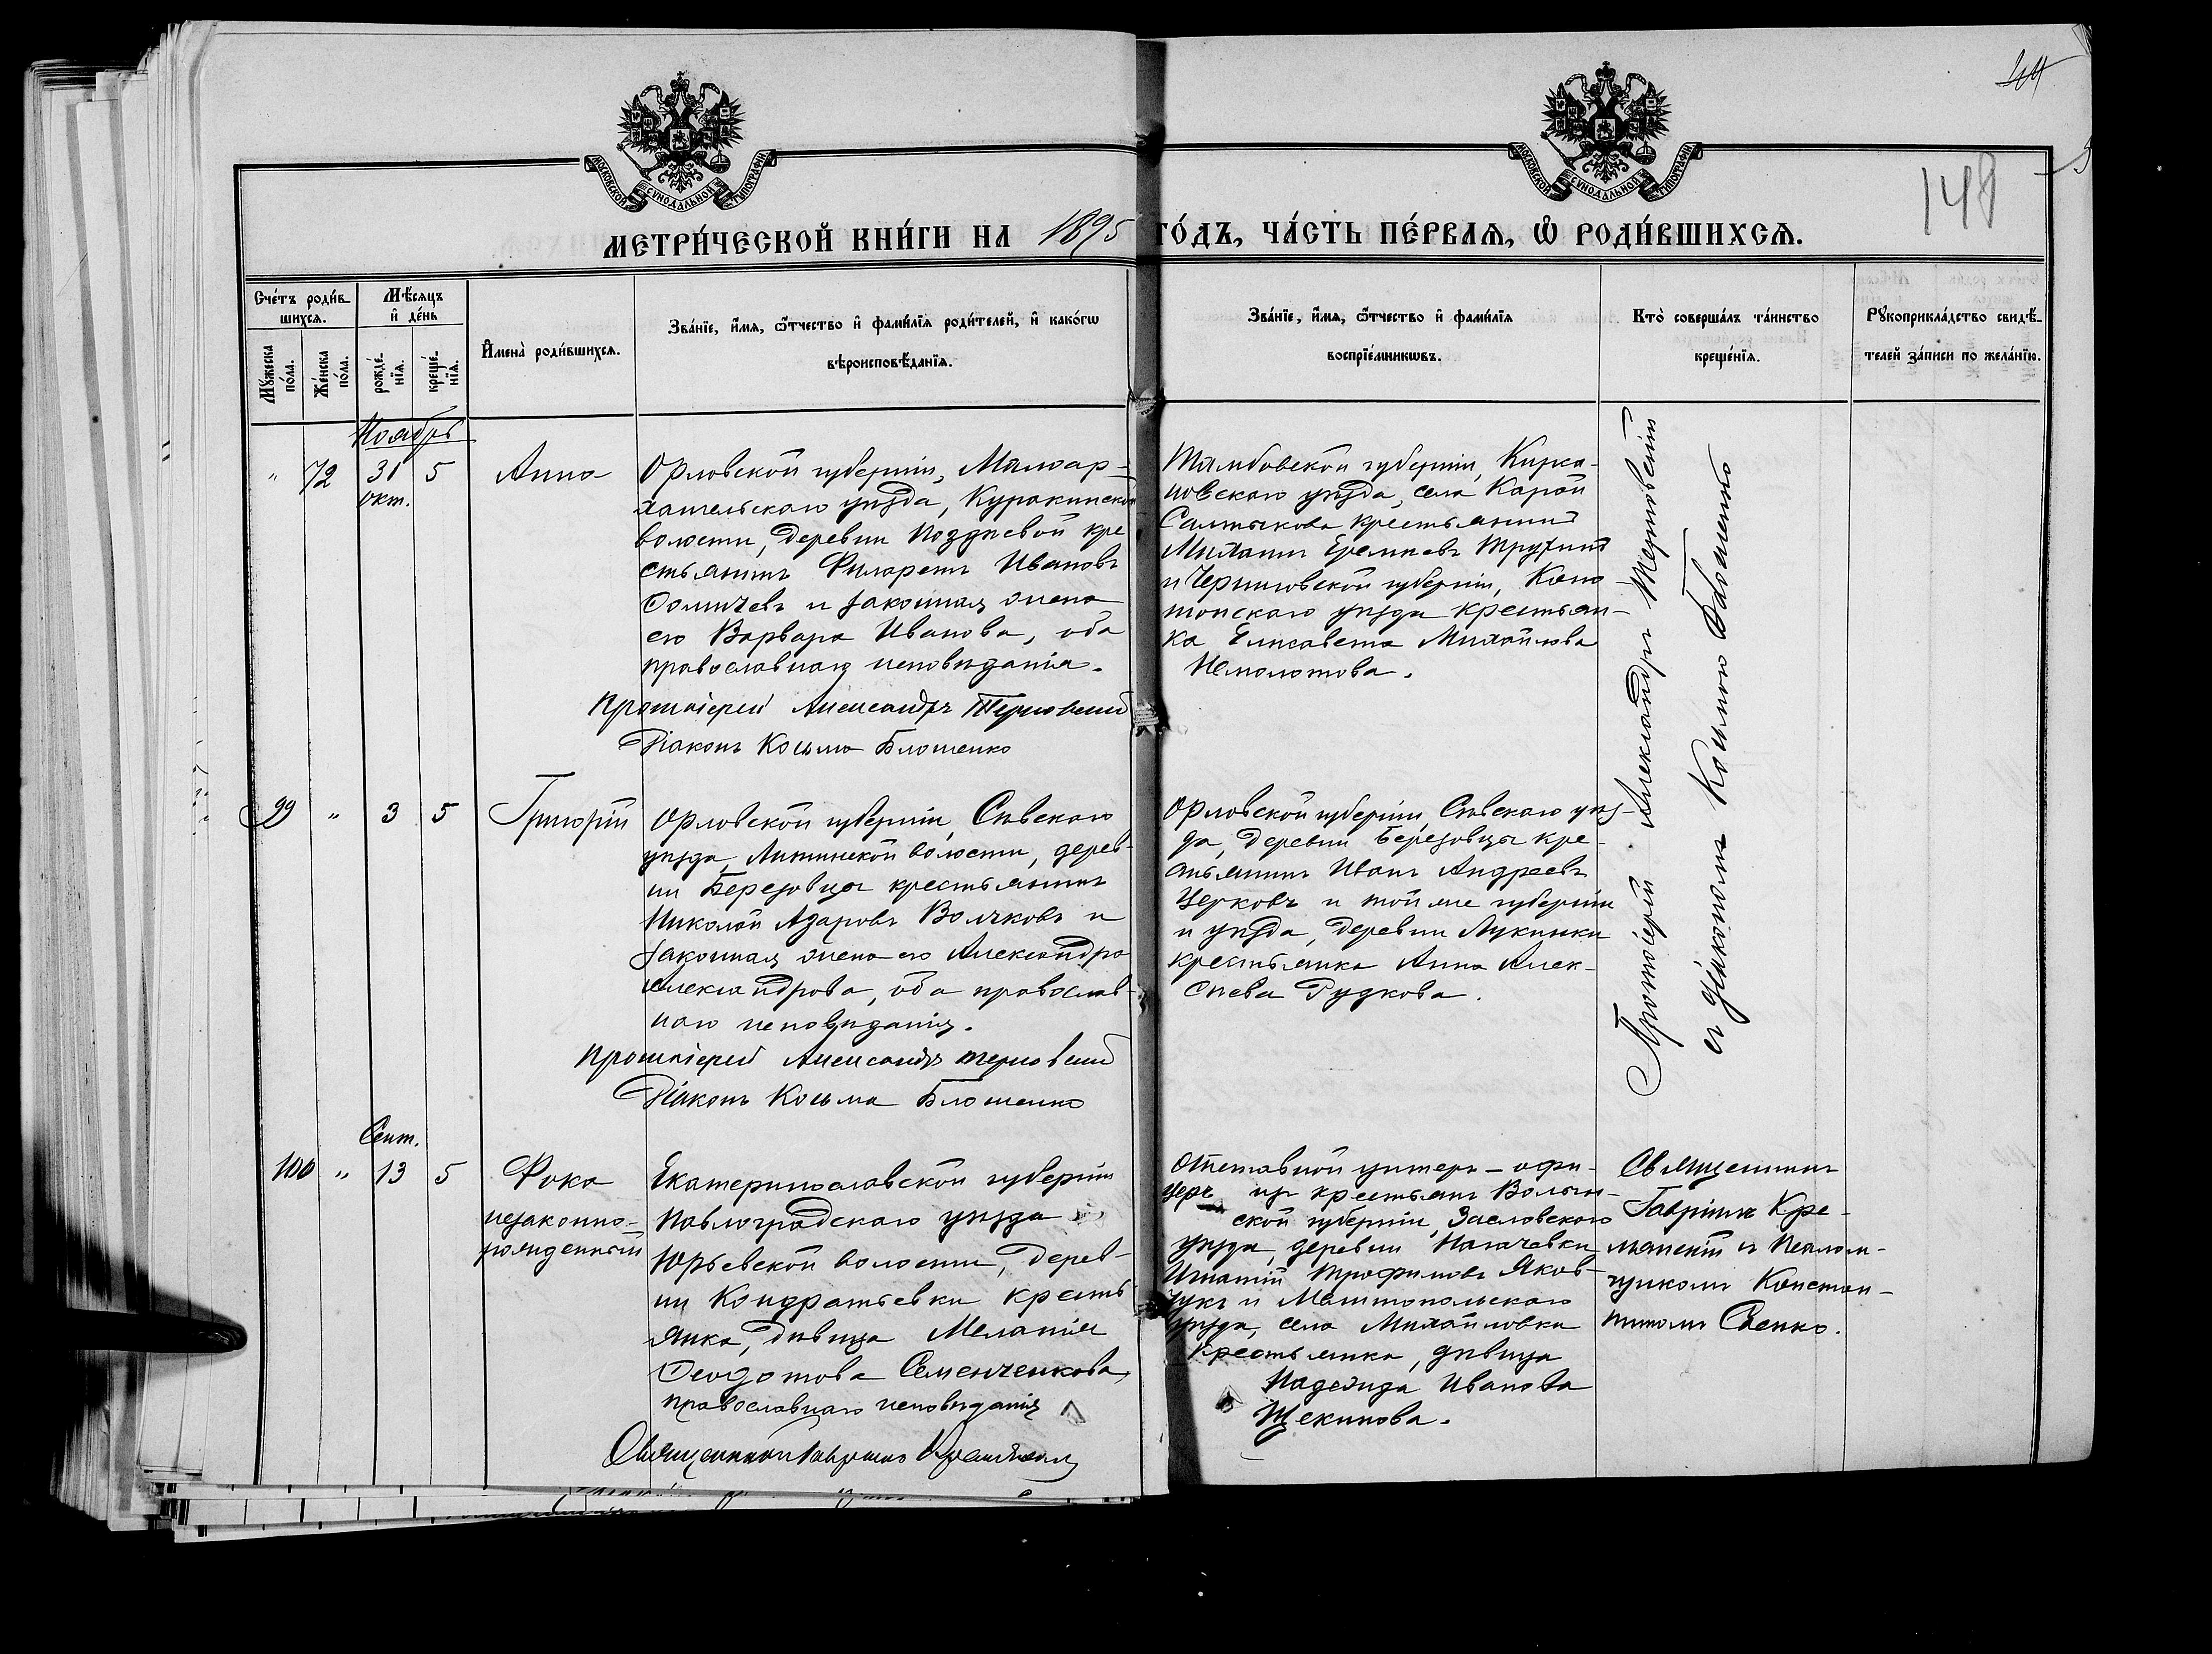 144
148
МОСКОВСКОЙ СѴНОДАЛЬНОЙ ТИПОГРАФІИ
МОСКОВСКОЙ СѴНОДАЛЬНОЙ ТИПОГРАФІИ
МЕТРИ́ЧЕСКОЙ КНИ́ГИ НА 1895 ГО́ДЪ, ЧА́СТЬ ПЕ́РВАЯ, Ѡ҆ РОДИ́ВШИХСЯ.
Сче́тъ роди́в-
шихся.
Му́жеска по́ла.
Же́нска по́ла.
Мѣ́сяцъ
и҆ де́нь
рожде́-
нїя.
креще́-
нїя.
И҆мена̀ роди́вшихся.
Зва́нїе, и҆́мя, ѻ҆́тчество и҆ фами́лїя роди́телей, и҆ како́гѡ
вѣроисповѣ́данїя.
Зва́нїе, и҆́мя, ѻ҆́тчество и҆ фами́лїя
воспрїе́мникѡвъ.
Кто̀ соверша́лъ та́инство
креще́нїя.
Рꙋкоприкла́дство свидѣ́-
телей за́писи по жела́нїю.
Ноябрь
" 72 31 5 Анна
окт.
Орловской губерніи, Малоар-
хангельскаго уѣзда, Куракинской
волости, деревни Поздѣевой кре
стьянинъ Филаретъ Ивановъ
Ѳомичевъ и законная жена
его Варвара Иванова, оба
православнаго исповѣданія.
Протоіерей Александръ Терновскій
Діаконъ Косьма Блошенко
Тамбовской губерніи, Кирса-
новскаго уѣзда, села Карай
Салтыкова крестьянинъ
Михаилъ Еремѣевъ Трухинъ
и Черниговской губерніи, Коно
топскаго уѣзда крестьян-
ка Елисавета Михайлова
Немолотова.
Протоіерей Александръ Терновскій
съ діакономъ Косьмою Блошенко
99 " 3 5 Григорій
Орловской губерніи, Сѣвскаго
уѣзда, Литинской волости, дерев-
ни Березовца крестьянинъ
Николай Азаровъ Волчковъ и
законная жена его Александра
Александрова, оба православ-
наго исповѣданія.
Протоіерей Александръ Терновскій
Діаконъ Косьма Блошенко
Орловской губерніи, Сѣвскаго уѣз-
да, деревни Березовца кре-
стьянинъ Иванъ Андреевъ
Церковъ и той же губерніи
и уѣзда, деревни Лукинки
крестьянка Анна Алек-
сѣева Рудкова.
Сент.
100 " 13 5 Фока
незаконно-
рожденный
Екатеринославской губерніи
Павлоградскаго уѣзда
Юрьевской волости, дерев-
ни Кондратьевки кресть
янка, дѣвица Меланія
Ѳеодотова Семенченкова,
православнаго исповѣданія
Священникъ Гавріилъ
Отставной унтеръ-офи-
церъ изъ крестьянъ Волын-
ской губерніи, Заславскаго
уѣзда, деревни Нагачевки
Игнатій Трофимовъ Яков-
чукъ и Мелитопольскаго
уѣзда, села Михайловки
крестьянка, дѣвица
Надежда Иванова
Щекинова.
Священникъ
Гавріилъ Кре-
мянскій съ псалом-
щикомъ Констан-
тиномъ Саенко.